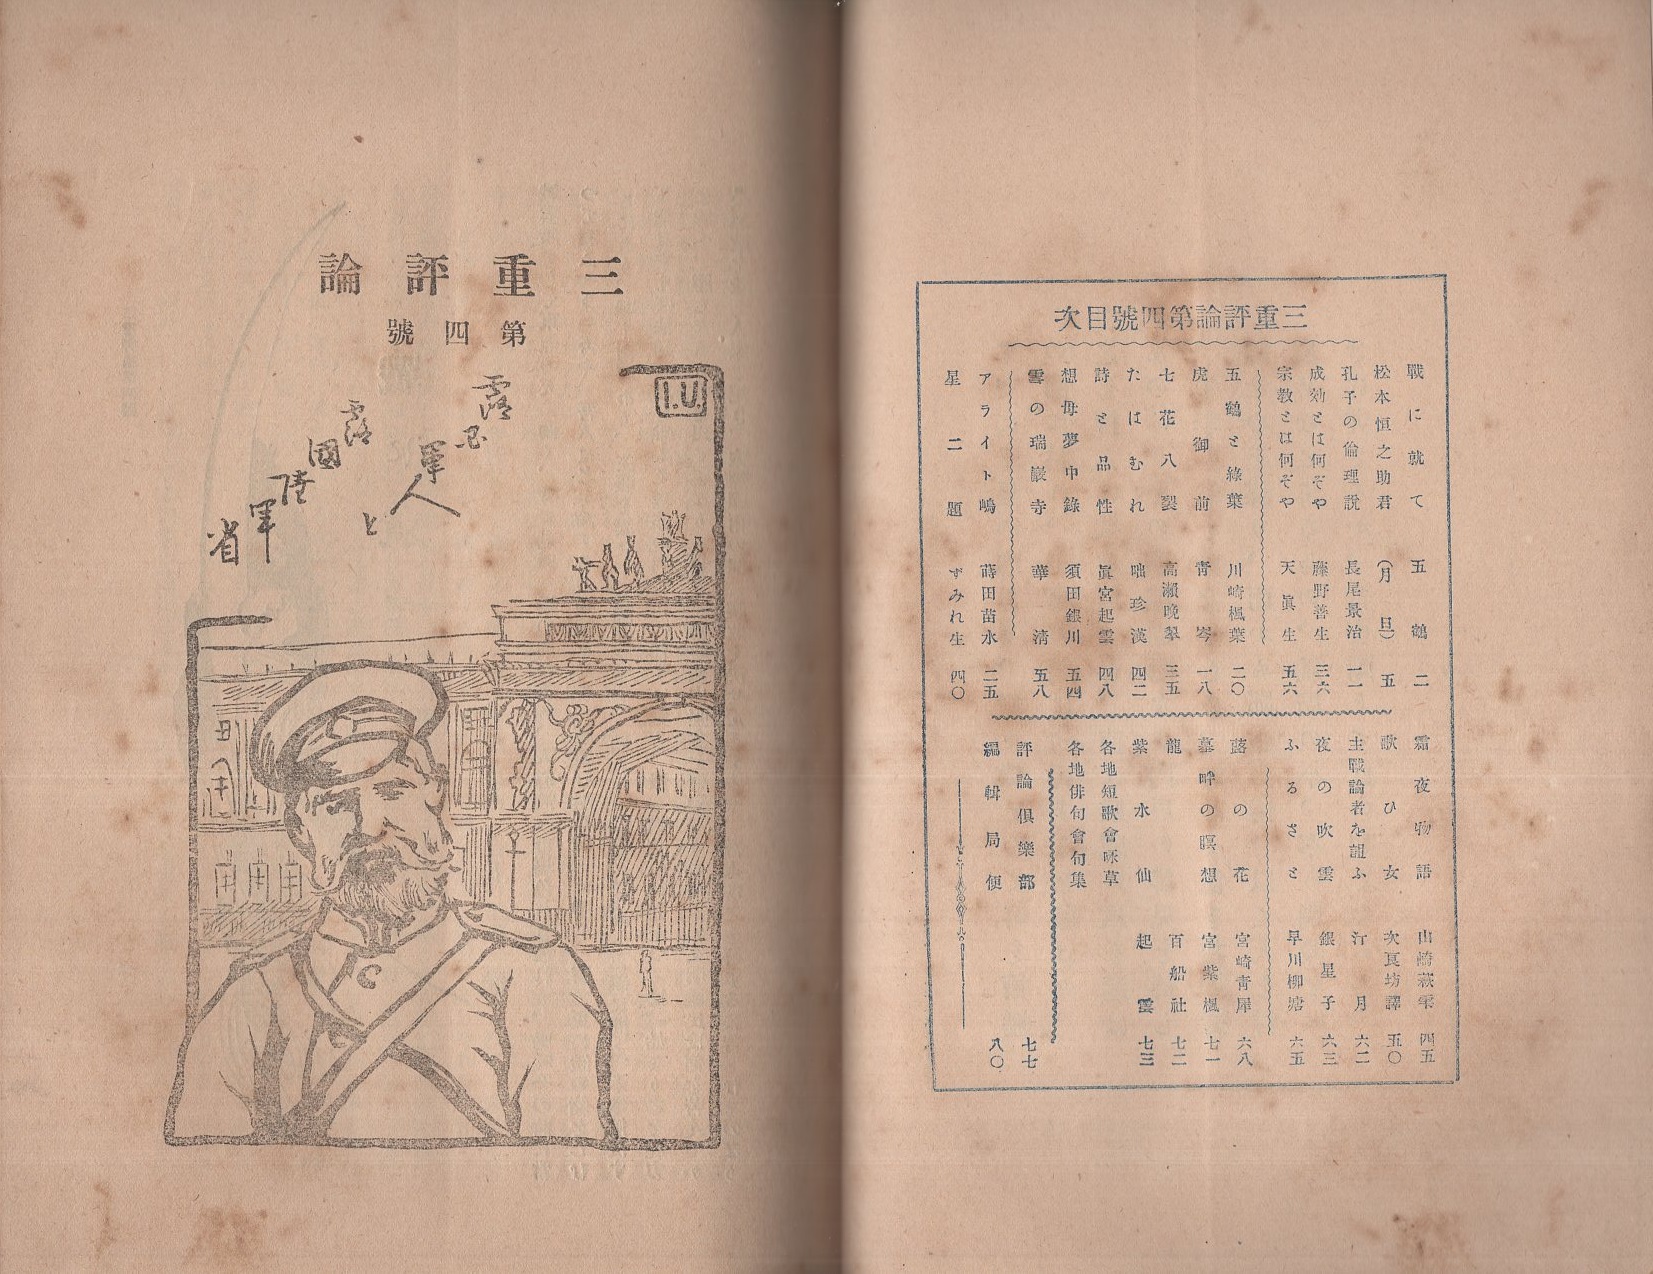 三重評論第四號目次
戰に就て 五鶴 二
松本恒之助君 (月旦) 五
孔子の倫理說 長尾景治 一一
成効とは何ぞや 藤野善生 三六
宗教とは何ぞや 天眞生 五六
五鶴と綠葉 川崎楓葉 二〇
虎御前 靑岑 一八
七花八裂 高瀨晚翠 三五
たはむれ 咄珍漢 四二
詩と品性 眞宮起雲 四八
想母夢中錄 須田銀川 五四
雪の瑞巖寺 華淸 五八
アライト嶋 蒔田苗水 二五
星二題 すみれ生 四〇
霜夜物語 山崎萩雫 四五
歌ひ女 次良坊譯 五〇
主戰論者を詛ふ 汀月 六二
夜の吹雲 銀星子 六三
ふるさと 早川柳塘 六五
蕗の花 宮崎靑犀 六八
墓畔の瞑想 宮紫楓 七一
龍 百船社 七二
紫水仙 起雲 七三
各地短歌會詠草
各地俳句會句集
評論俱樂部 七七
編輯局便 八〇
三重評論
第四號
I.U.
露國軍人
と
露國陸軍省